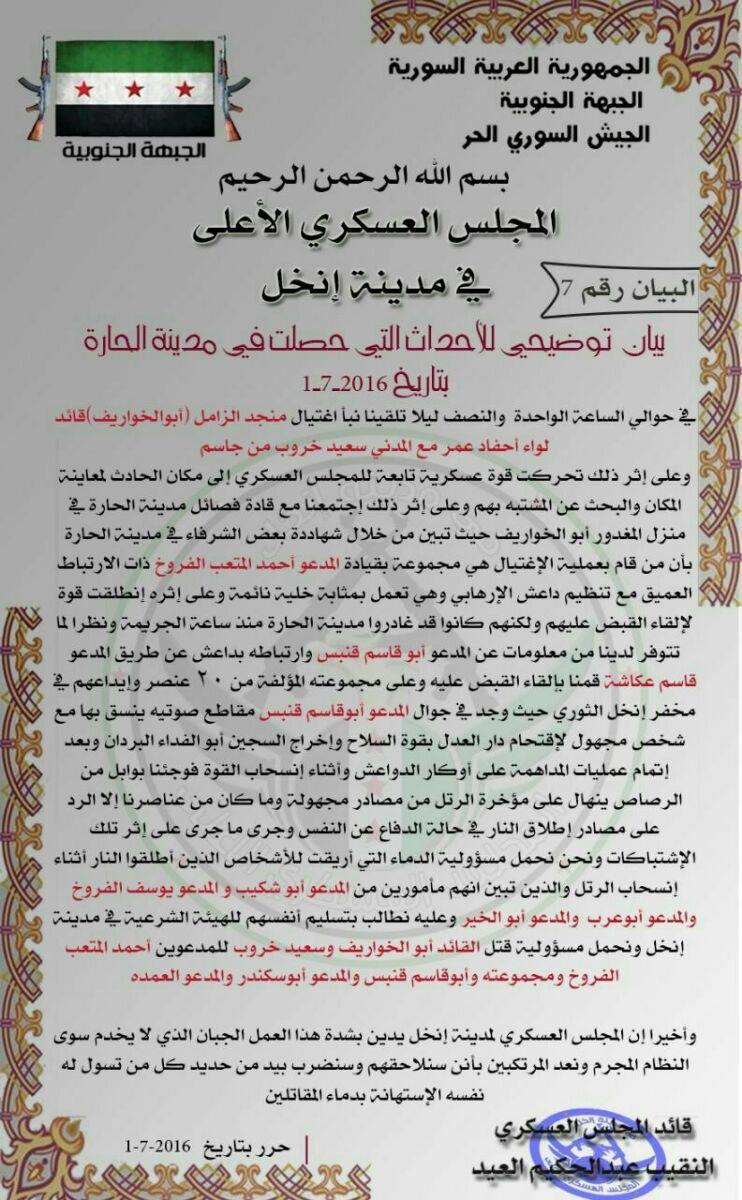 الجمهورية العربية السورية
الجبهة الجنوبية
الجيش السوري الحر
الجبهة الجنوبية
بسم الله الرحمن الرحيم
المجلس العسكري الأعلى
في مدينة إنخل
البيان رقم 7
بيان توضيحي للأحداث التي حصلت في مدينة الحارة
بتاريخ 2016-7-1
في حوالي الساعة الواحدة والنصف ليلا تلقينا نبأ اغتيال منجد الزامل (أبوالخواريف)قائد
لواء أحفاد عمر مع المدني سعيد خروب من جاسم
وعلى إثر ذلك تحركت قوة عسكرية تابعة للمجلس العسكري إلى مكان الحادث لمعاينة
المكان والبحث عن المشتبه بهم وعلى إثر ذلك إجتمعنا مع قادة فصائل مدينة الحارة في
منزل المغدور أبو الخواريف حيث تبين من خلال شهاددة بعض الشرفاء في مدينة الحارة
بأن من قام بعملية الإغتيال هي مجموعة بقيادة المدعو أحمد المتعب الفروخ ذات الارتباط
العميق مع تنظيم داعش الإرهابي وهي تعمل بمثابة خلية نائمة وعلى إثره إنطلقت قوة
لإلقاء القبض عليهم ولكنهم كانوا قد غادروا مدينة الحارة منذ ساعة الجريمة ونظرا لما
تتوفر لدينا من معلومات عن المدعو أبو قاسم قنبس وارتباطه بداعش عن طريق المدعو
قاسم عكاشة قمنا بإلقاء القبض عليه وعلى مجموعته المؤلفة من ٢٠ عنصر وإيداعهم في
مخفر إنخل الثوري حيث وجد في جوال المدعو أبوقاسم قنبس مقاطع صوتيه ينسق بها مع
شخص مجهول لإقتحام دار العدل بقوة السلاح وإخراج السجين أبو الفداء البردان وبعد
إتمام عمليات المداهمة على أوكار الدواعش وأثناء إنسحاب القوة فوجئنا بوابل من
الرصاص ينهال على مؤخرة الرتل من مصادر مجهولة وما كان من عناصرنا إلا الرد
على مصادر إطلاق النار في حالة الدفاع عن النفس وجرى ما جرى على إثر تلك
الإشتباكات ونحن نحمل مسؤولية الدماء التي أريقت للأشخاص الذين أطلقوا النار أثناء
إنسحاب الرتل والذين تبين انهم مأمورين من المدعو أبو شكيب و المدعو يوسف الفروخ
والمدعو أبوعرب والمدعو أبو الخير وعليه نطالب بتسليم أنفسهم للهيئة الشرعية في مدينة
إنخل ونحمل مسؤولية قتل القائد أبو الخواريف وسعيد خروب للمدعوين أحمد المتعب
الفروخ ومجموعته وأبوقاسم قنبس والمدعو أبوسكندر والمدعو العمده
وأخيرا إن المجلس العسكري لمدينة إنخل يدين بشدة هذا العمل الجبان الذي لا يخدم سوى
النظام المجرم ونعد المرتكبين بأنن سنلاحقهم وسنضرب بيد من حديد كل من تسول له
نفسه الإستهانة بدماء المقاتلين
قائد المجلس العسكري
النقيب عبدالحكيم العيد
حرر بتاريخ 2016-7-1